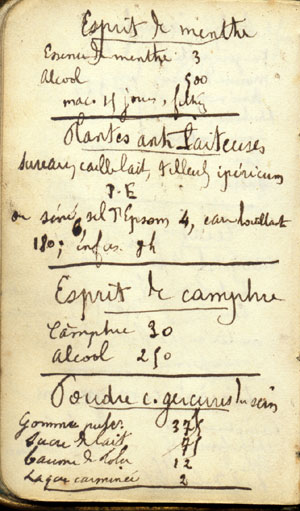 Esprit de menthe
Essence de menthe 3
Alcool 500
mac. 4 jours, filtrez
Plantes anti laiteuses
Sureau, caille lait, tilleul ipéricum
P. E
ou séné, 6, sel d'Epsom 4, eau bouillant
180; infus. ½h
Esprit de camphre
Camphre 30
Alcool 250
Poudre c. gerçures du sein
Gomme pulv. 37
Sucre de lait
baume de tolu 12
Laque carminée 2